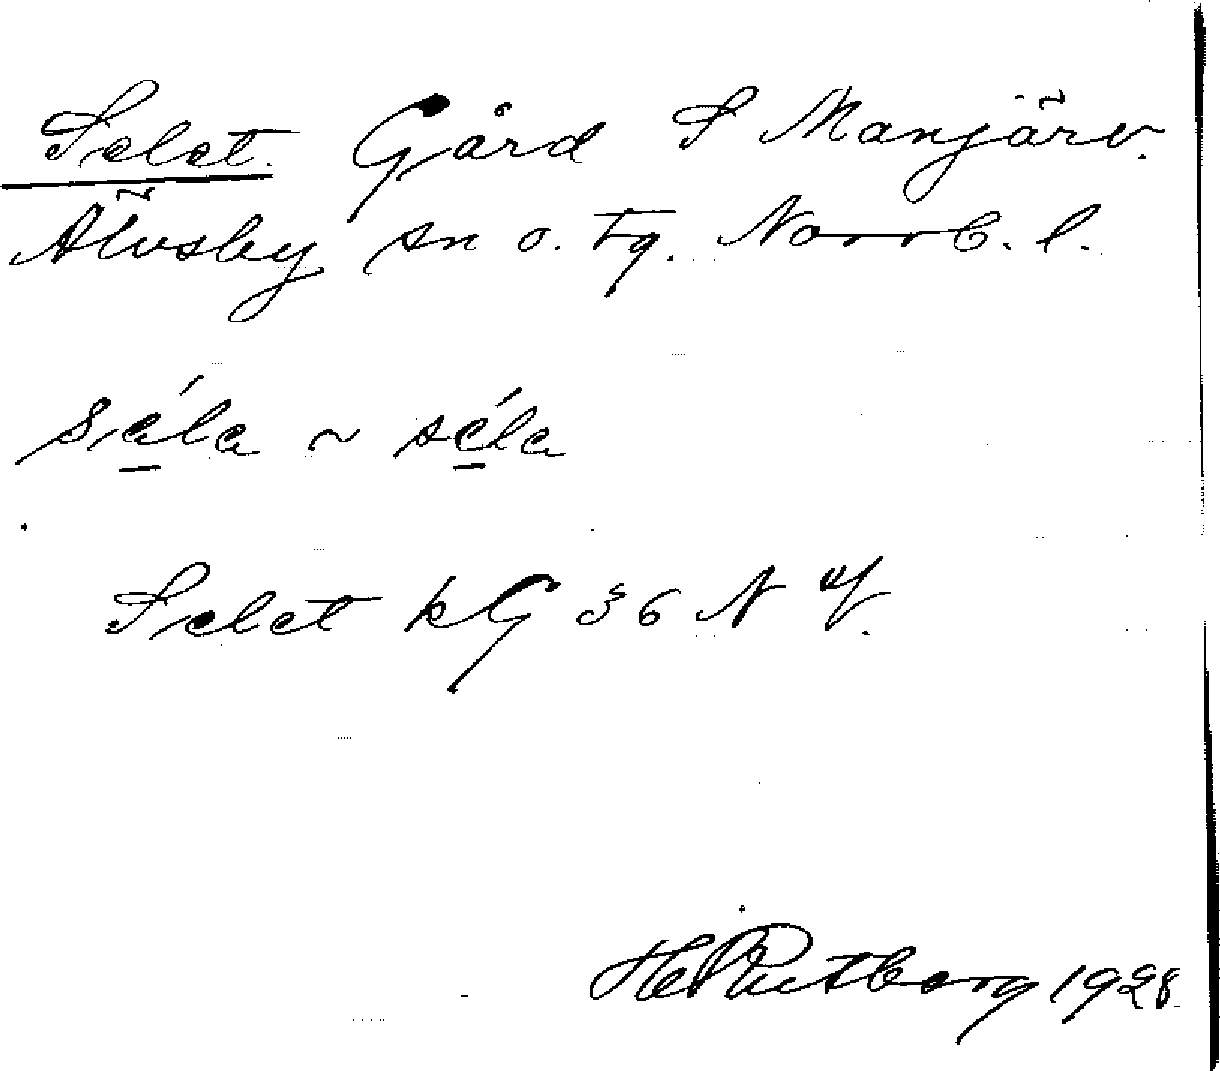 Selet. Gård S Manjärv.
Älvsby sn o. tg. Norrb. l.
séla ~ séla
Selet kG 36 N V.
H Rutberg 1928